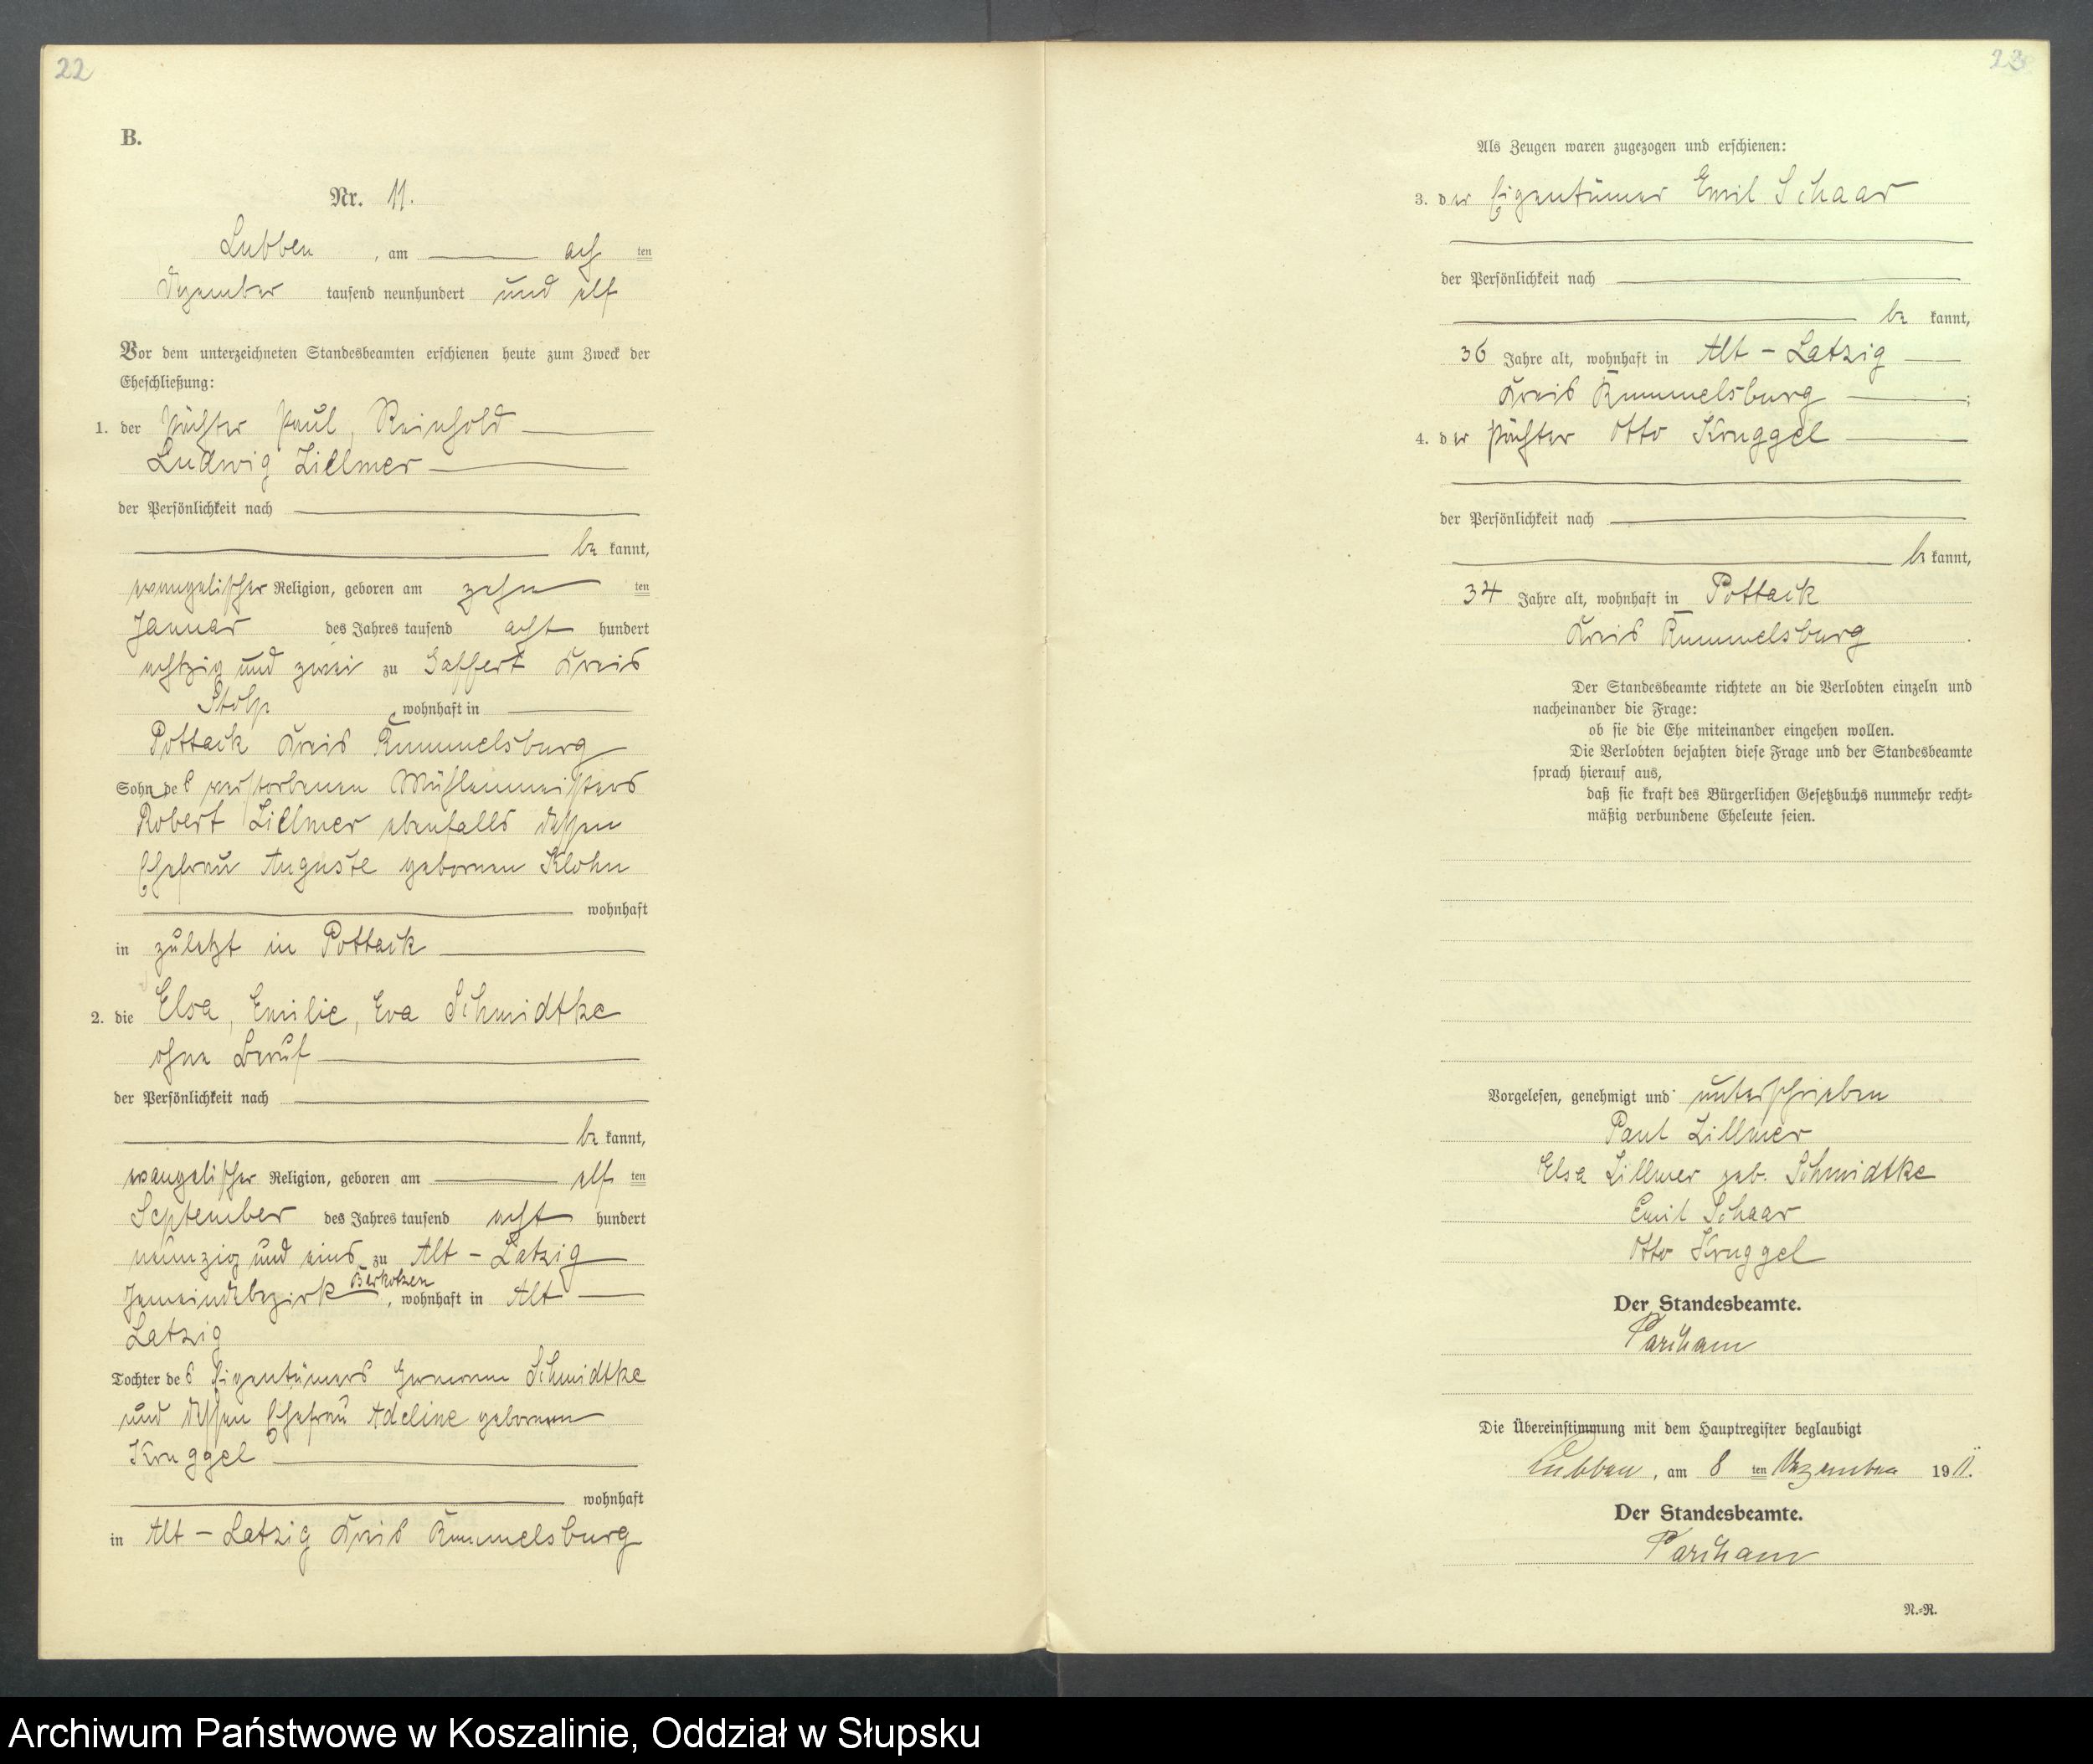 22
B.
Nr. 11.
Lubben, am ach ten
Dezember tausend neunhundert und elf
Vor dem unterzeichneten Standesbeamten erschienen heute zum Zweck der
Eheschließung:
1. der Pächter Paul, Reinhold
Ludwig Lillmer
der Persönlichkeit nach
be kannt,
evangelischer Religion, geboren am zehn ten
Januar des Jahres tausend acht hundert
achtzig und zwei zu Gaffert Kreis
Stolp, wohnhaft in
Pottack Kreis Rummelsburg
Sohn des verstorbenen Mühlenmeisters
Robert Lillmer ebenfalls dessen
Ehefrau Auguste gebornen Klohn
wohnhaft
in zuletzt in Pottack
2. die Elsa, Emilie, Eva Schmidtke
ohne Beruf
der Persönlichkeit nach
be kannt,
evangelischer Religion, geboren am elf ten
September des Jahres tausend acht hundert
neunzig und eins zu Alt - Latzig
Gemeindebezirk, wohnhaft in Alt
Latzig
Tochter des Eigentümers Hermann Schmidtke
und dessen Ehefrau Adeline gebornen
Kruggel
wohnhaft
in Alt - Latzig Kreis Rummelsburg
23
Als Zeugen waren zugezogen und erschienen:
3. der Eigentümer Emil Schaar
der Persönlichkeit nach
be kannt,
36 Jahre alt, wohnhaft in Alt - Latzig
Kreis Rummelsburg ;
4. der Pächter Otto Kruggel
der Persönlichkeit nach
be kannt,
34 Jahre alt, wohnhaft in Pottack
Kreis Rummelsburg.
Der Standesbeamte richtete an die Verlobten einzeln und
nacheinander die Frage:
ob sie die Ehe miteinander eingehen wollen.
Die Verlobten bejahten diese Frage und der Standesbeamte
sprach hierauf aus,
daß sie kraft des Bürgerlichen Gesetzbuchs nunmehr recht-
mäßig verbundene Eheleute seien.
Vorgelesen, genehmigt und unterschrieben
Paul Lillmer
Elsa Lillmer geb. Schmidtke
Emil Schaar
Otto Kruggel
Der Standesbeamte.
Parcham
Die Übereinstimmung mit dem Hauptregister beglaubigt
Lubben, am 8 ten Dezember 1911.
Der Standesbeamte.
Parcham
N.-R.
Archiwum Państwowe w Koszalinie, Oddział w Słupsku